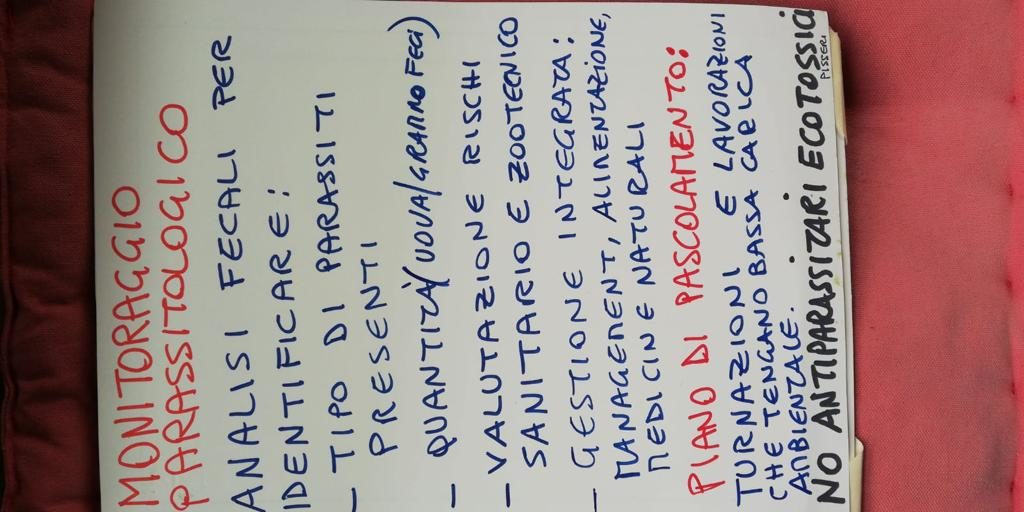 MONITORAGGIO
PARASSITOLOGICO
ANALISI FECALI PER
IDENTIFICARE:
- TIPO DI PARASSITI
PRESENTI
- QUANTITÀ (UOVA/GRAMMO FECI)
- VALUTAZIONE RISCHI
SANITARIO E ZOOTECNICO
- GESTIONE INTEGRATA:
MANAGEMENT, ALIMENTAZIONE,
MEDICINE NATURALI
PIANO DI PASCOLAMENTO:
TURNAZIONI E LAVORAZIONI
CHE TENGANO BASSA CARICA
AMBIENTALE.
NO ANTIPARASSITARI ECOTOSSICI
PISSERI